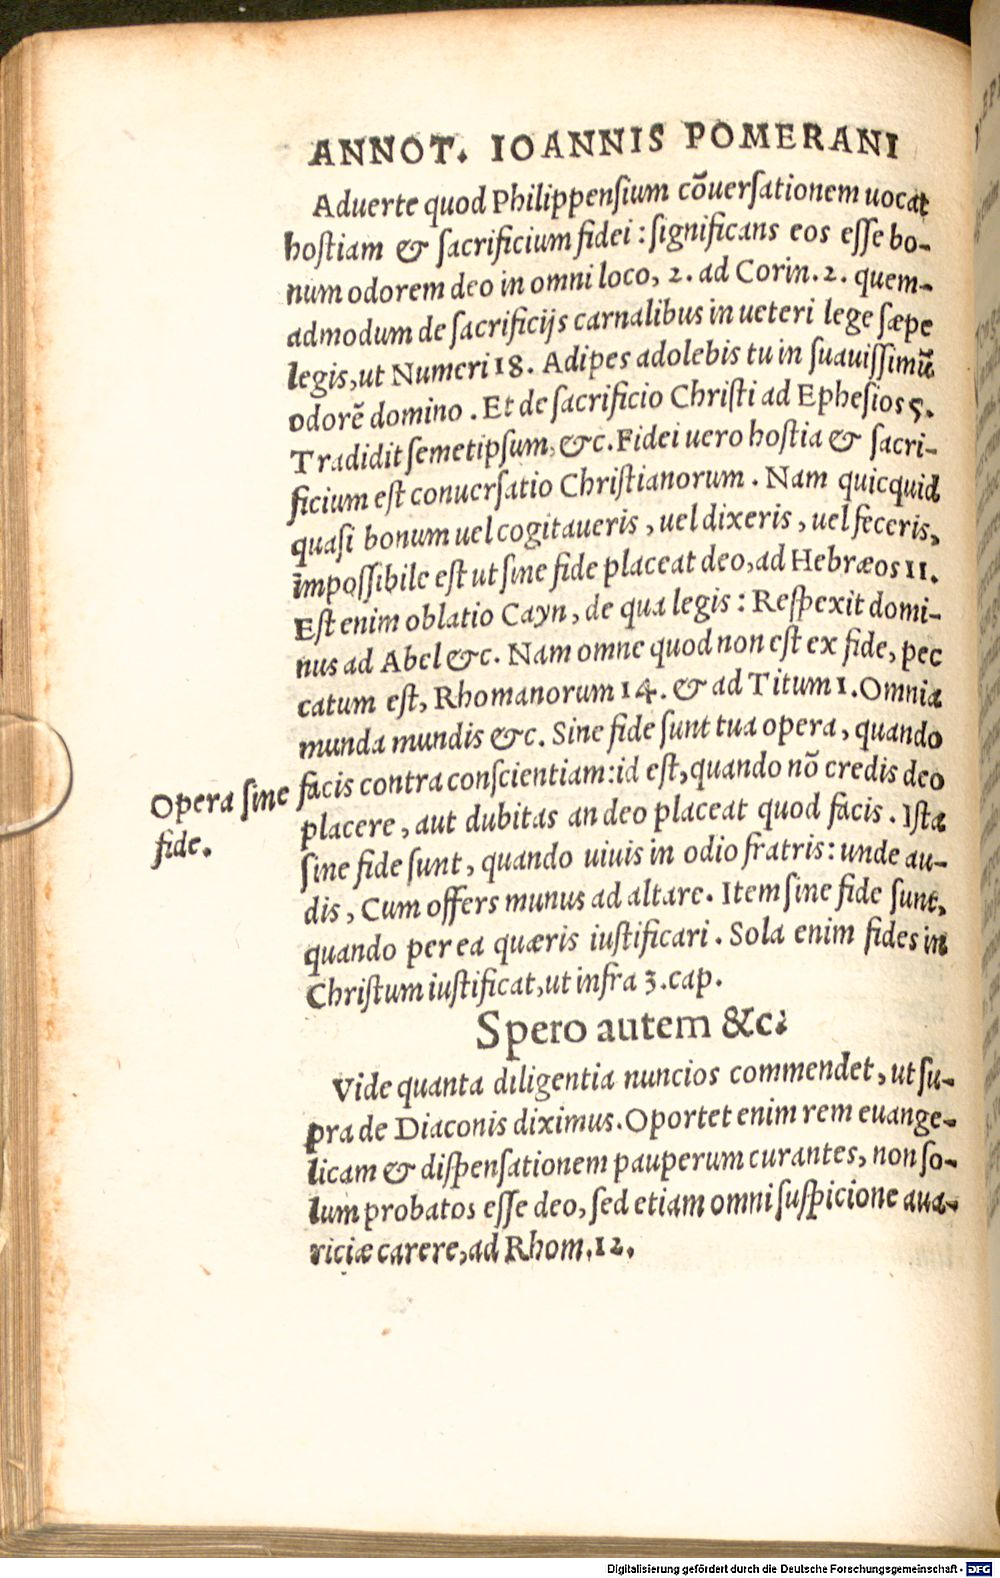 ANNOT. IOANNIS POMERANI
Aduerte quod Philippensium cõuersationem uocat
hostiam & sacrificium fidei : significans eos esse bo-
num odorem deo in omni loco, 2. ad Corin. 2. quem-
admodum de sacrificijs carnalibus in ueteri lege sæpe
legis, ut Numeri 18. Adipes adolebis tu in suauissimũ
odorẽ domino . Et de sacrificio Christi ad Ephesios 5.
Tradidit semetipsum, &c. Fidei uero hostia & sacri-
ficium est conuersatio Christianorum . Nam quicquid
quasi bonum uel cogitaueris , uel dixeris , uel feceris,
impossibile est ut sine fide placeat deo, ad Hebræos 11.
Est enim oblatio Cayn, de qua legis : Respexit domi-
nus ad Abel &c. Nam omne quod non est ex fide, pec
catum est, Rhomanorum 14. & ad Titum 1. Omnia
munda mundis &c. Sine fide sunt tua opera, quando
facis contra conscientiam: id est, quando nõ credis deo
Opera sine
fide.
placere, aut dubitas an deo placeat quod facis . Ista
sine fide sunt, quando uiuis in odio fratris: unde au-
dis , Cum offers munus ad altare. Item sine fide sunt,
quando per ea quæris iustificari . Sola enim fides in
Christum iustificat, ut infra 3. cap.
Spero autem &c.
Vide quanta diligentia nuncios commendet, ut su-
pra de Diaconis diximus. Oportet enim rem euange-
licam & dispensationem pauperum curantes, non so-
lum probatos esse deo, sed etiam omni suspicione aua-
riciæ carere, ad Rhom. 12.
Digitalisierung gefördert durch die Deutsche Forschungsgemeinschaft - DFG